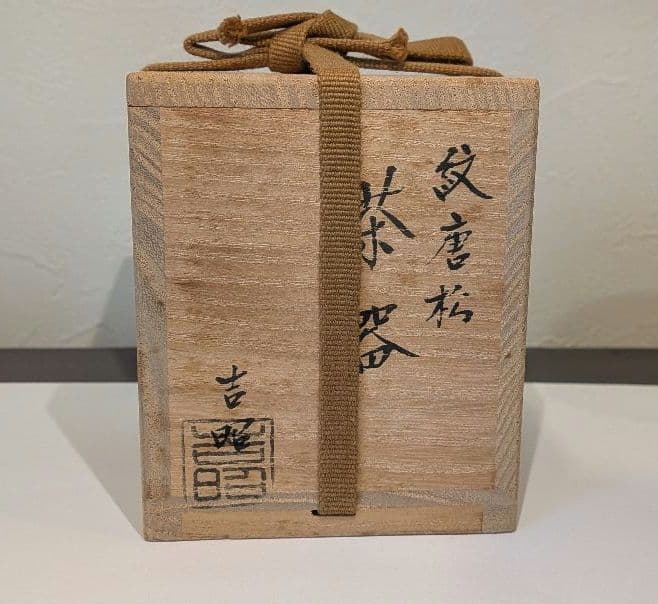 紋唐松
茶器
吉昭